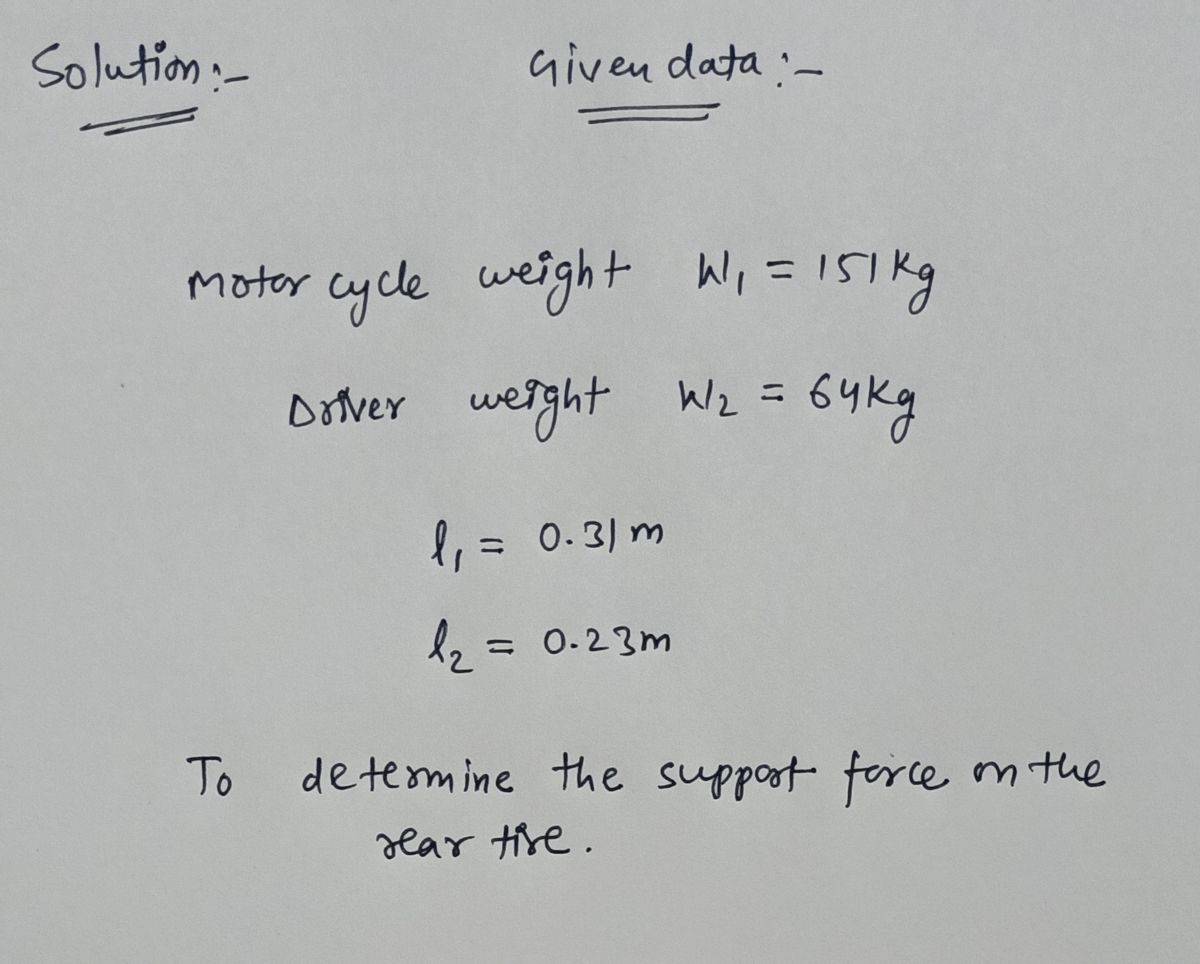 Solution :-
Given data :-
Motor cycle weight W₁ = 151 Kg
Driver weight W₂ = 64 Kg
l₁ = 0.31 m
l₂ = 0.23 m
To determine the support force on the
rear tire.